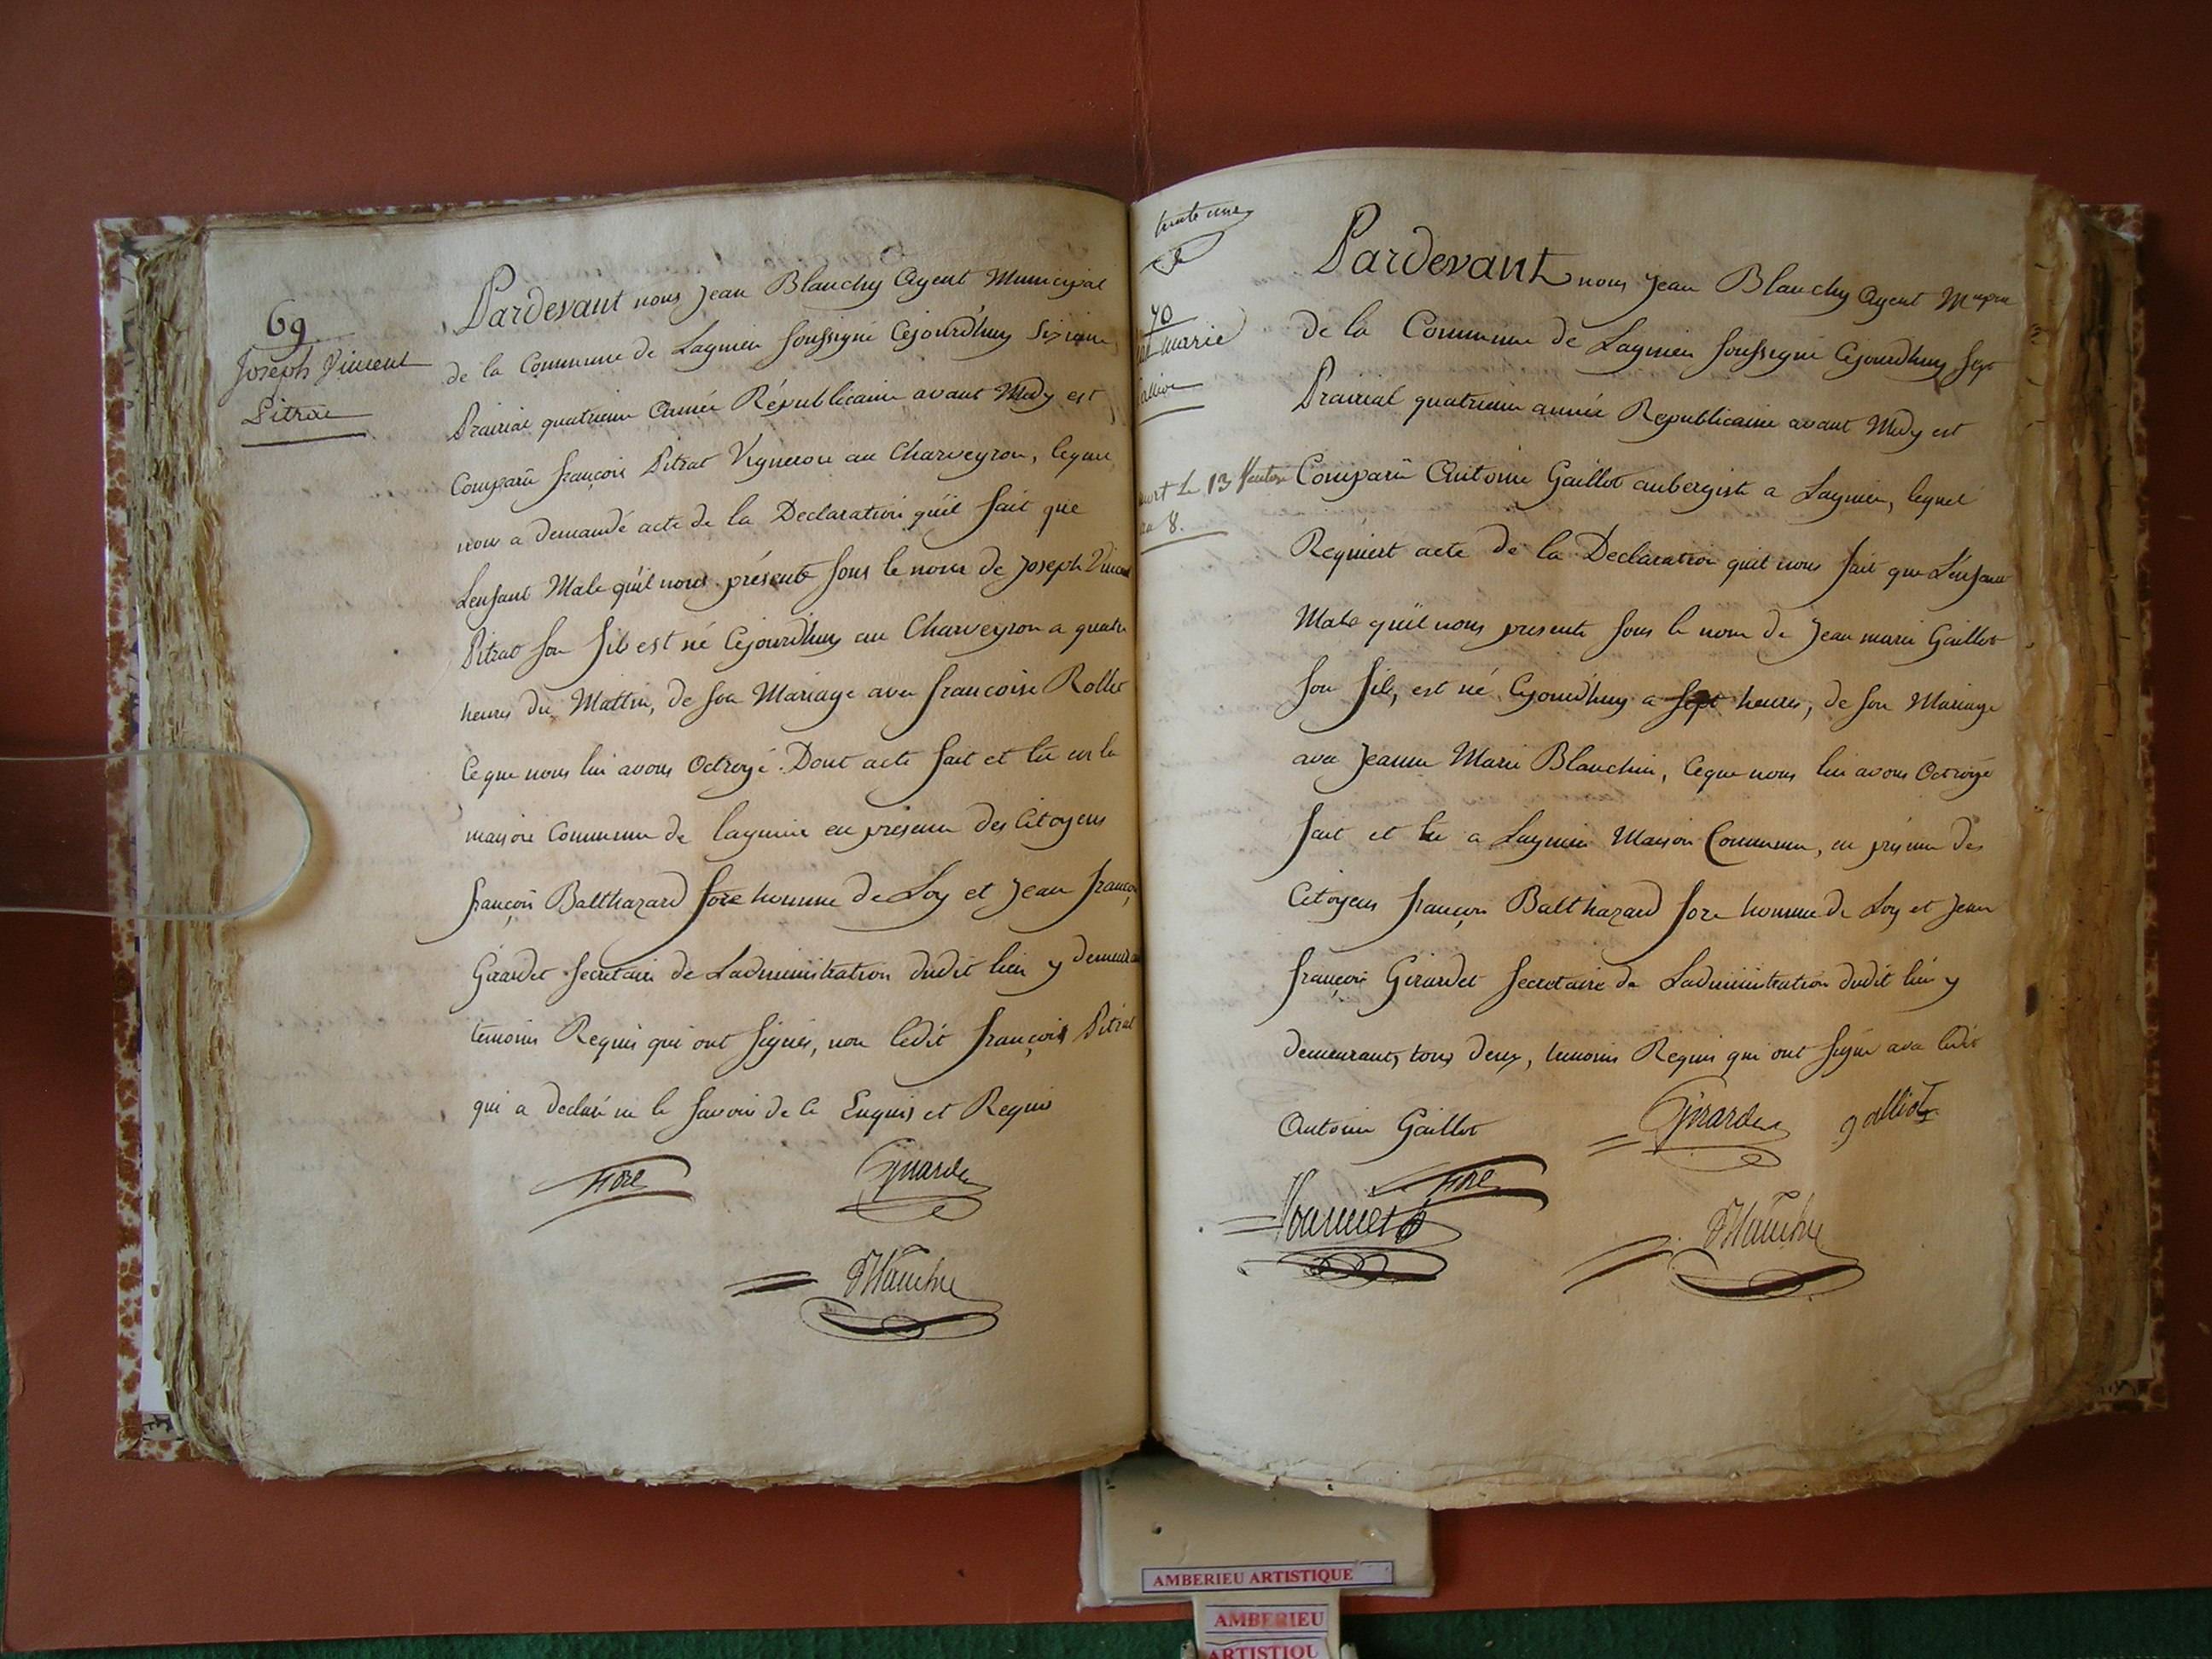 69
Joseph Vincent
Pitrat
Pardevant nous Jean Blanchy Agent Municipal
de la Commune de Lagnieu soussigné Cejourd'huy Sixieme
Prairial quatrieme Année Républicaine avant Midy est
Comparû françois Pitrat Vigneron au Charveyron, lequel
nous a demandé acte de la Declaration qu'il fait que
L'enfant Male qu'il nous présente sous le nom de Joseph Vincent
Pitrat son fils est né Cejourd'huy au Charveyron a quatre
heures du Mattin, de son Mariage avec francoise Rollet
Ce que nous lui avons Octroyé. Dont acte fait et lu en la
maison Commune de lagnieu en présence des Citoyens
françois Balthazard fore homme de Loy et Jean françois
Girardet Secretaire de L'administration dudit lieu y demeurant
temoins Requis qui ont signés, non ledit françois Pitrat
qui a declaré ne le savoir de ce Enquis et Requis
fore Girardet
Blanchy
trente une
70
marie
mort le 13 Ventose
8.
Pardevant nous Jean Blanchy Agent Mupal
de la Commune de Lagnieu soussigné Cejourdhuy sept
Prairial quatrieme année Republicaine avant Midy est
Comparû Antoine Gaillot aubergiste a Lagnieu, lequel
Requiert acte de la Declaration qu'il nous fait que L'enfant
Male qu'il nous presente sous le nom de Jean marie Gaillot
son fils, est né Cejourd'huy a sept heures, de son Mariage
avec Jeanne Marie Blanchin, Ce que nous lui avons Octroyé
fait et lu a Lagnieu Maison Commune, en présence des
Citoyens françois Balthazard fore homme de Loy et Jean
françois Girardet Secretaire de L'administration dudit lieu y
demeurants tous deux, temoins Requis qui ont signé avec ledit
Antoine Gaillot Girardet galliot
fore
Blanchy
AMBERIEU ARTISTIQUE
AMBERIEU